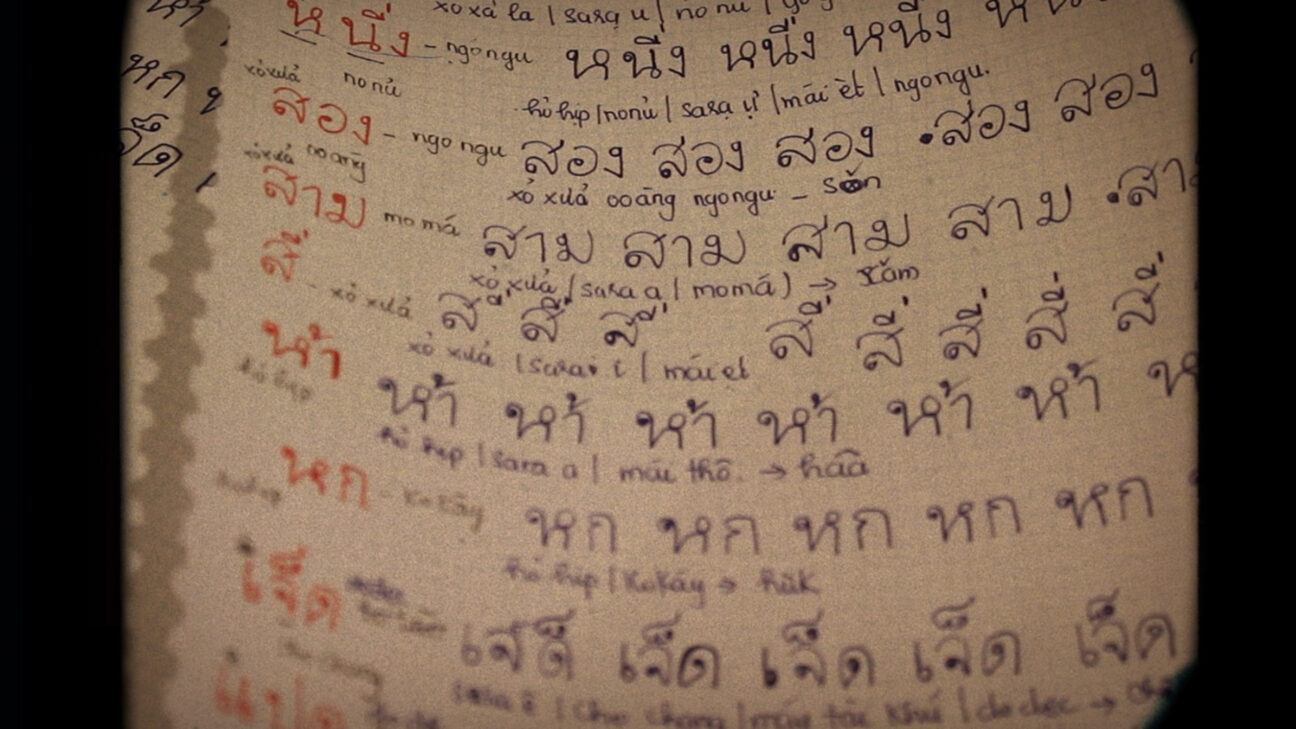 หา
xo xả la / sara u / no nu /
หนึ่ง - ngongu หนึ่ง หนึ่ง หนึ่ง ห
หก ,
xỏ xuả no nủ hỏ hịp / no nủ / sara ụ̉ / mái ệt / ngongu.
สอง - ngo ngu สอง สอง สอง สอง สอง
็ด ,
xỏ xuả oo ang xỏ xuả oo āng ngongu - sỏn
สาม mo má สาม สาม สาม สาม สา
xỏ xuả / sara a / momá ) → xăm
สี่ - xỏ xuả สี่ สี่ สี่ สี่ สี่ สี่ สี่ สี่
xỏ xuả / sara i / mái ẹt
ห้า ห้า ห้า ห้า ห้า ห้า ห้า ห
hỏ hịp hỏ hịp / sara a / mái thô. → hãã
หก - หก หก หก หก หก
hỏ hịp / ko káy → hük
เจ็ด เจ็ด เจ็ด เจ็ด เจ็ด เจ็ด
sara ê / cho chang / máy tái khú / do dec →
แปด